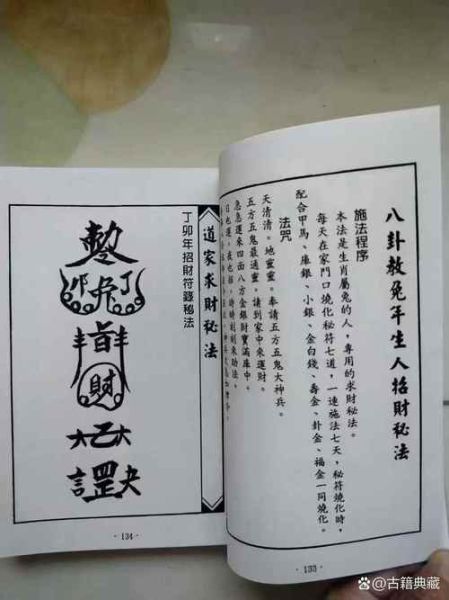 八卦敕兔年生人招財秘法
施法程序
本法是生肖屬兔的人，專用的求財秘法。
每天在家門口燒化秘符七道，一連施法七天，秘符燒化時，
配合甲馬、廉銀、小銀、金白錢、壽金、卦金、福金一同燒化。
法咒
天清清。地靈靈。奉請五方五鬼大神兵。
五方五鬼最通靈。請到家中來運財。
急急運來四面八方金銀財寶滿庫中。
日也運，夜也招，時時刻刻來助法。
·133·
道家求財秘法
丁卯年招財符籙秘法
丁
卯
財
·134·
頭條 @古籍典藏